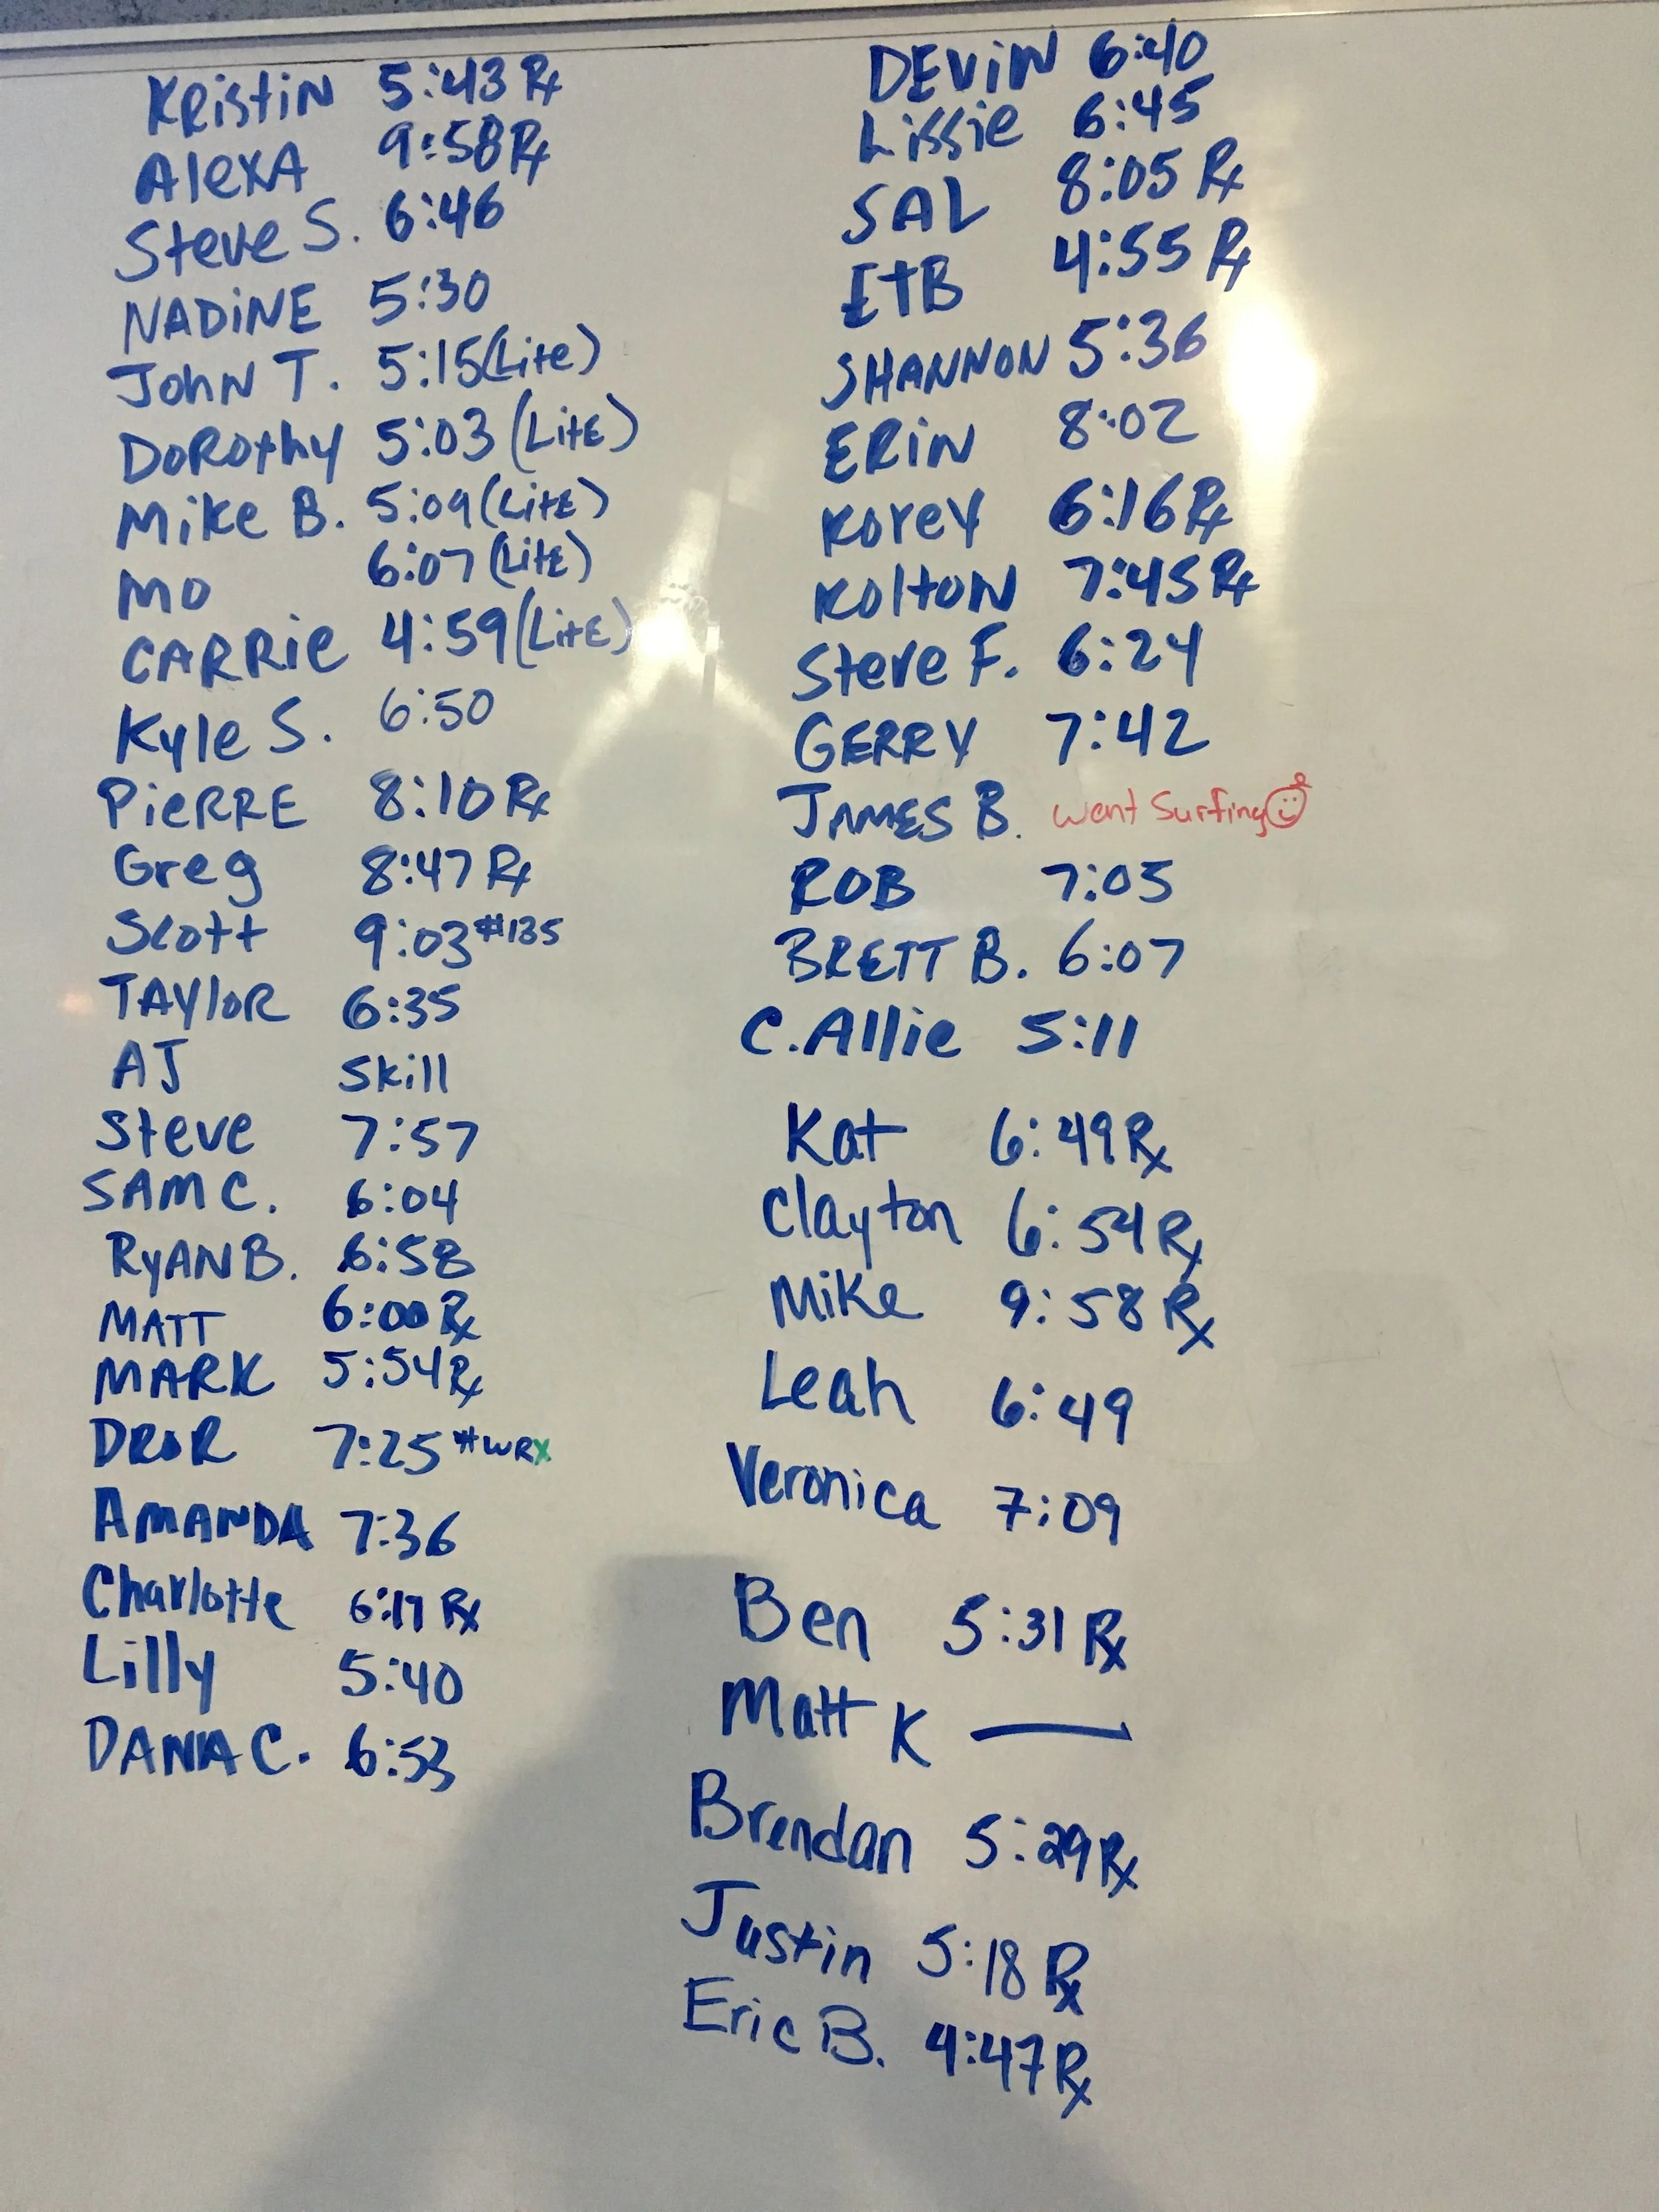 Kristin 5:43 Rx
Alexa 9:58 Rx
Steve S. 6:46
NADiNE 5:30
John T. 5:15 (Lite)
Dorothy 5:03 (Lite)
Mike B. 5:09 (Lite)
MO 6:07 (Lite)
CARRie 4:59 (Lite)
Kyle S. 6:50
PieRRE 8:10 Rx
Greg 8:47 Rx
Scott 9:03 #135
TAYloR 6:35
AJ Skill
Steve 7:57
SAM C. 6:04
RyAN B. 6:58
MATT 6:00 Rx
MARK 5:54 Rx
DROR 7:25 #WRX
AMANDA 7:36
Charlotte 6:17 Rx
Lilly 5:40
DANA C. 6:53
DEViN 6:40
Lissie 6:45
SAL 8:05 Rx
ETB 4:55 Rx
SHANNON 5:36
ERiN 8:02
Korey 6:16 Rx
Kolton 7:45 Rx
Steve F. 6:24
GERRY 7:42
JAMES B. went Surfing
ROB 7:05
BRETT B. 6:07
C. Allie 5:11
Kat 6:49 Rx
Clayton 6:54 Rx
Mike 9:58 Rx
Leah 6:49
Veronica 7:09
Ben 5:31 Rx
Matt K —
Brendan 5:29 Rx
Justin 5:18 Rx
Eric B. 4:47 Rx